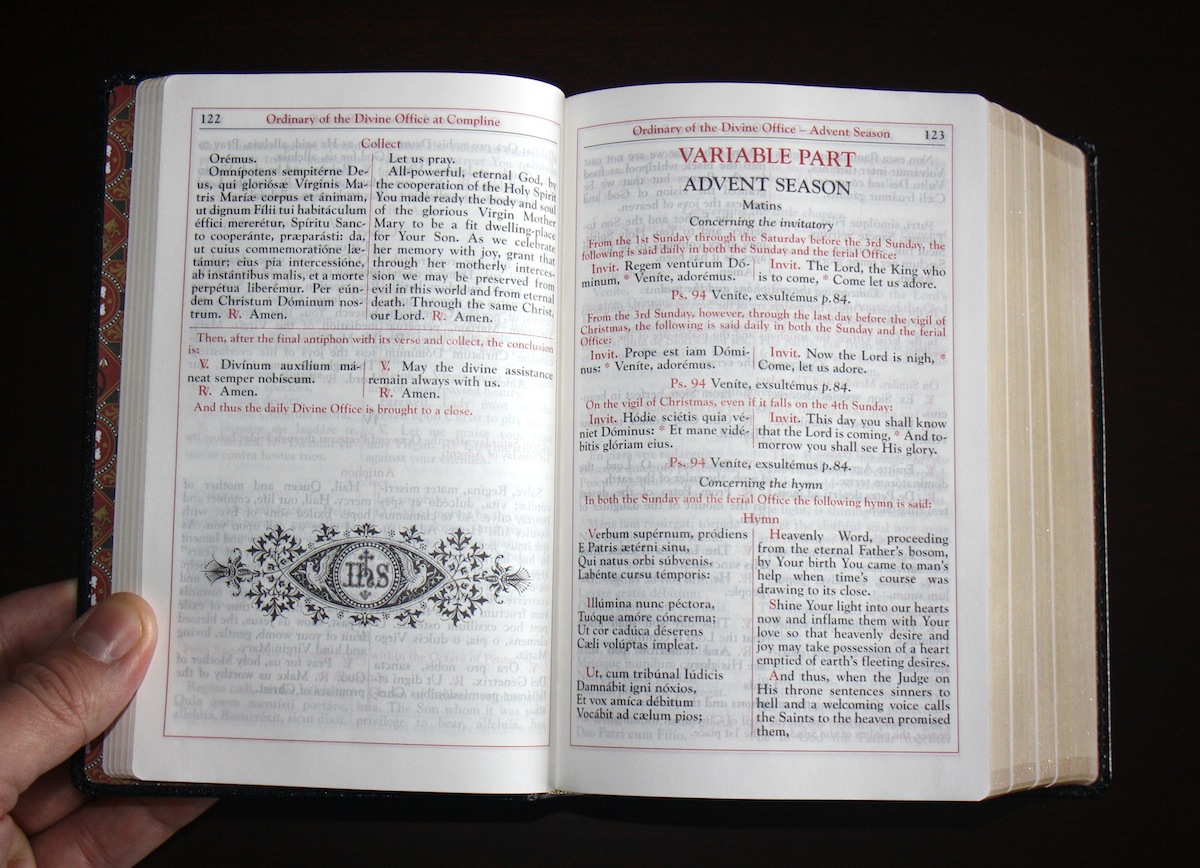 122
Ordinary of the Divine Office at Compline
Collect
Orémus.
Omnípotens sempitérne De-
us, qui gloriósæ Vírginis Ma-
tris Maríæ corpus et ánimam,
ut dignum Fílii tui habitáculum
éffici mererétur, Spíritu Sanc-
to cooperánte, præparásti: da,
ut cuius commemoratióne læ-
támur; eius pia intercessióne,
ab instántibus malis, et a morte
perpétua liberémur. Per eún-
dem Christum Dóminum nos-
trum. ℟. Amen.
Let us pray.
All-powerful, eternal God, by
the cooperation of the Holy Spirit
You made ready the body and soul
of the glorious Virgin Mother
Mary to be a fit dwelling-place
for Your Son. As we celebrate
her memory with joy, grant that
through her motherly interces-
sion we may be preserved from
evil in this world and from eternal
death. Through the same Christ,
our Lord. ℟. Amen.
Then, after the final antiphon with its verse and collect, the conclusion
is:
℣. Divínum auxílium má-
neat semper nobíscum.
℟. Amen.
℣. May the divine assistance
remain always with us.
℟. Amen.
And thus the daily Divine Office is brought to a close.
IHS
Ordinary of the Divine Office – Advent Season
123
VARIABLE PART
ADVENT SEASON
Matins
Concerning the invitatory
From the 1st Sunday through the Saturday before the 3rd Sunday, the
following is said daily in both the Sunday and the ferial Office:
Invit. Regem ventúrum Dó-
minum, * Veníte, adorémus.
Invit. The Lord, the King who
is to come, * Come let us adore.
Ps. 94 Veníte, exsultémus p.84.
From the 3rd Sunday, however, through the last day before the vigil of
Christmas, the following is said daily in both the Sunday and the ferial
Office:
Invit. Prope est iam Dómi-
nus: * Veníte, adorémus.
Invit. Now the Lord is nigh, *
Come, let us adore.
Ps. 94 Veníte, exsultémus p.84.
On the vigil of Christmas, even if it falls on the 4th Sunday:
Invit. Hódie sciétis quia vé-
niet Dóminus: * Et mane vidé-
bitis glóriam eius.
Invit. This day you shall know
that the Lord is coming, * And to-
morrow you shall see His glory.
Ps. 94 Veníte, exsultémus p.84.
Concerning the hymn
In both the Sunday and the ferial Office the following hymn is said:
Hymn
Verbum supérnum, pródiens
E Patris ætérni sinu,
Qui natus orbi súbvenis,
Labénte cursu témporis:
Illúmina nunc péctora,
Tuóque amóre cóncrema;
Ut cor cadúca déserens
Cæli volúptas ímpleat.
Ut, cum tribúnal Iúdicis
Damnábit igni nóxios,
Et vox amíca débitum
Vocábit ad cælum pios;
Heavenly Word, proceeding
from the eternal Father's bosom,
by Your birth You came to man's
help when time's course was
drawing to its close.
Shine Your light into our hearts
now and inflame them with Your
love so that heavenly desire and
joy may take possession of a heart
emptied of earth's fleeting desires.
And thus, when the Judge on
His throne sentences sinners to
hell and a welcoming voice calls
the Saints to the heaven promised
them,